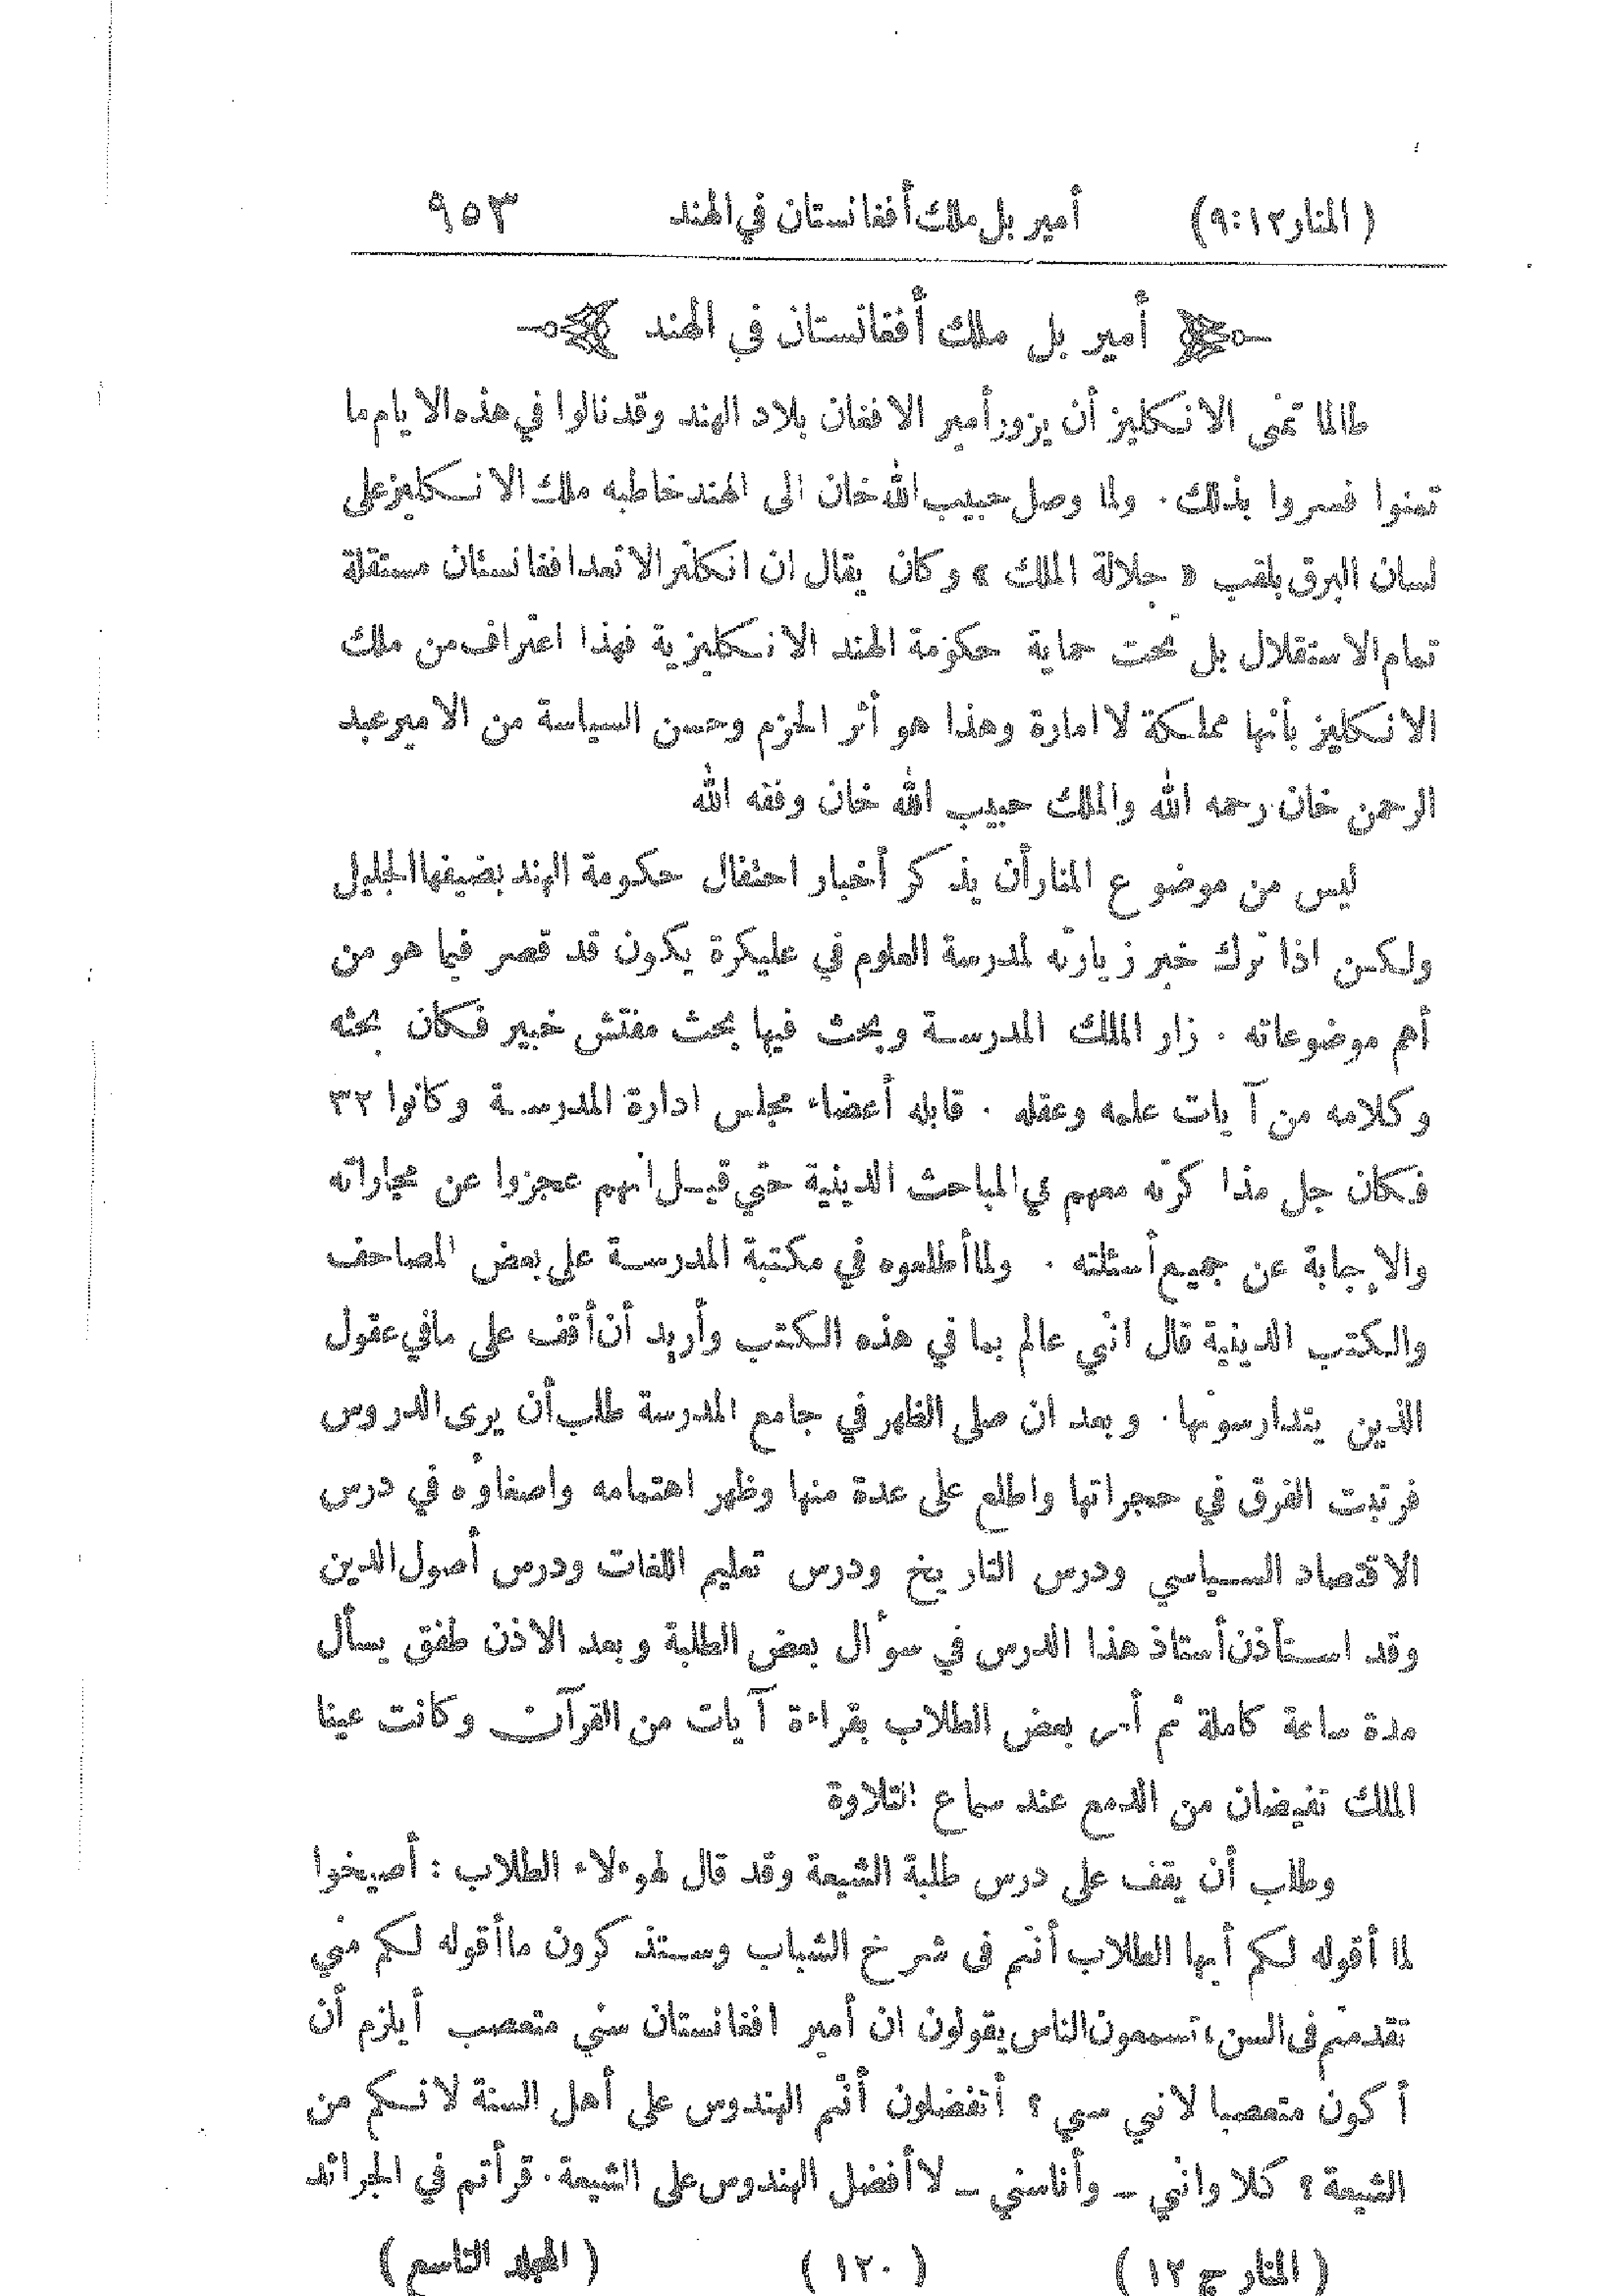 (المنار ١٢:٩) أمير بل ملك أفغانستان في الهند ٩٥٣
أمير بل ملك أفغانستان في الهند
طالما تمنى الانكليز أن يزور أمير الافغان بلاد الهند وقد نالوا في هذه الايام ما
تمنوا فسروا بذلك . ولما وصل حبيب الله خان الى الهند خاطبه ملك الانكليز على
لسان البرق بلقب « جلالة الملك » وكان يقال ان انكلترا لا تعد افغانستان مستقلة
تمام الاستقلال بل تحت حماية حكومة الهند الانكليزية فهذا اعتراف من ملك
الانكليز بأنها مملكة لا امارة وهذا هو أثر الحزم وحسن السياسة من الامير عبد
الرحمن خان رحمه الله والملك حبيب الله خان وفقه الله
ليس من موضوع المنار أن يذكر أخبار احتفال حكومة الهند بضيفها الجليل
ولكن اذا ترك خبر زيارته لمدرسة العلوم في عليكرة يكون قد قصر فيما هو من
أهم موضوعاته . زار الملك المدرسة وبحث فيها بحث مفتش خبير فكان بحثه
وكلامه من آيات علمه وعقله . قابله أعضاء مجلس ادارة المدرسة وكانوا ٣٢
فكان جل مذاكرته معهم في المباحث الدينية حتى قيل انهم عجزوا عن مجاراته
والإجابة عن جميع أسئلته . ولما أطلعوه في مكتبة المدرسة على بعض المصاحف
والكتب الدينية قال اني عالم بما في هذه الكتب وأريد أن أقف على ما في عقول
الذين يتدارسونها . وبعد ان صلى الظهر في جامع المدرسة طلب أن يرى الدروس
فرتبت الفرق في حجراتها واطلع على عدة منها وظهر اهتمامه واصغاؤه في درس
الاقتصاد السياسي ودرس التاريخ ودرس تعليم اللغات ودرس أصول الدين
وقد استأذن أستاذ هذا الدرس في سؤال بعض الطلبة وبعد الاذن طفق يسأل
مدة ساعة كاملة ثم أمر بعض الطلاب بقراءة آيات من القرآن وكانت عينا
الملك تفيضان من الدمع عند سماع التلاوة
وطلب أن يقف على درس طلبة الشيعة وقد قال لهؤلاء الطلاب : أصيخوا
لما أقوله لكم أيها الطلاب أنتم في شرخ الشباب وستذكرون ما أقوله لكم متى
تقدمتم في السن ، تسمعون الناس يقولون ان أمير افغانستان سني متعصب أيلزم أن
أكون متعصبا لاني سني ؟ أتفضلون أنتم الهندوس على أهل السنة لانكم من
الشيعة ؟ كلا واني – وأنا سني – لا أفضل الهندوس على الشيعة . قرأتم في الجرائد
(المنار ج ١٢) (١٢٠) (المجلد التاسع)